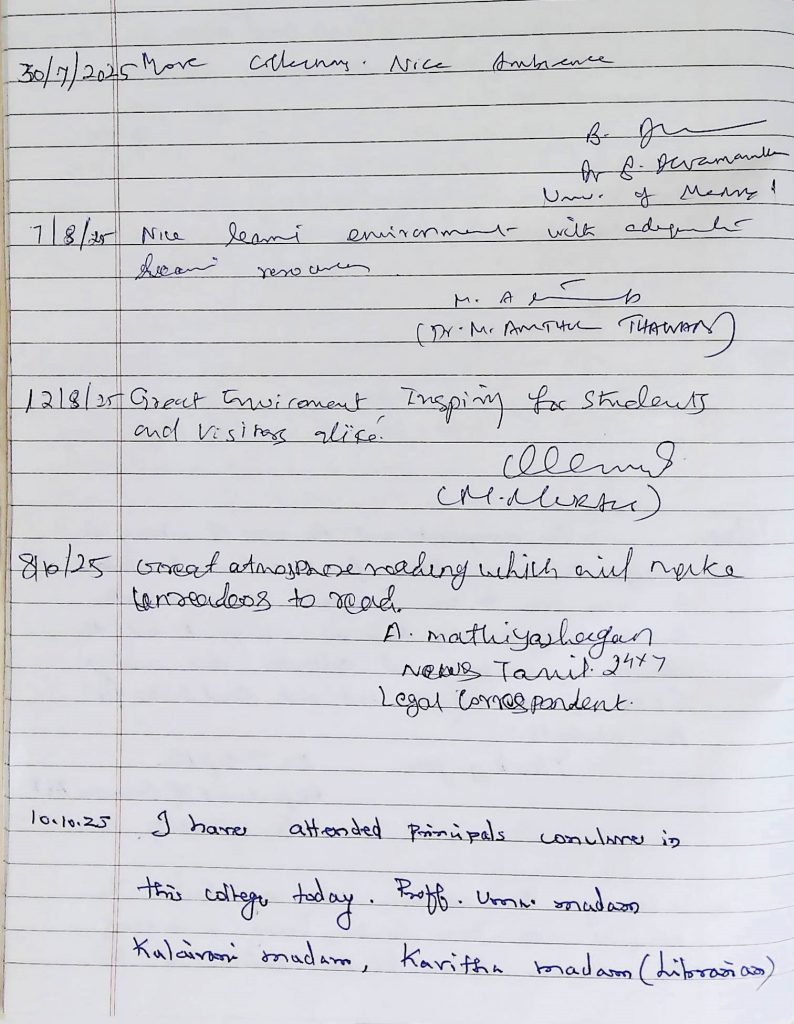 30/7/2025 More Collections. Nice Ambience
B.
Dr B. Devamani
Univ. of Madras
7/8/25 Nice learni environment with adequate
learni resources
M. A
(Dr. M. AMTHUL THAWAB)
12/8/25 Great Enviroment Inspiriy for Students
and visitors alike.
(M. MURALI)
8/10/25 Great atmosphore reading which will make
unreaders to read.
A. mathiyazhagan
News Tamil 24x7
Legal Correspondent.
10.10.25 I have attended Principals conclave in
this college today. Proff. Uma madam
Kalaivani madam, Karitha madam (Librarian)